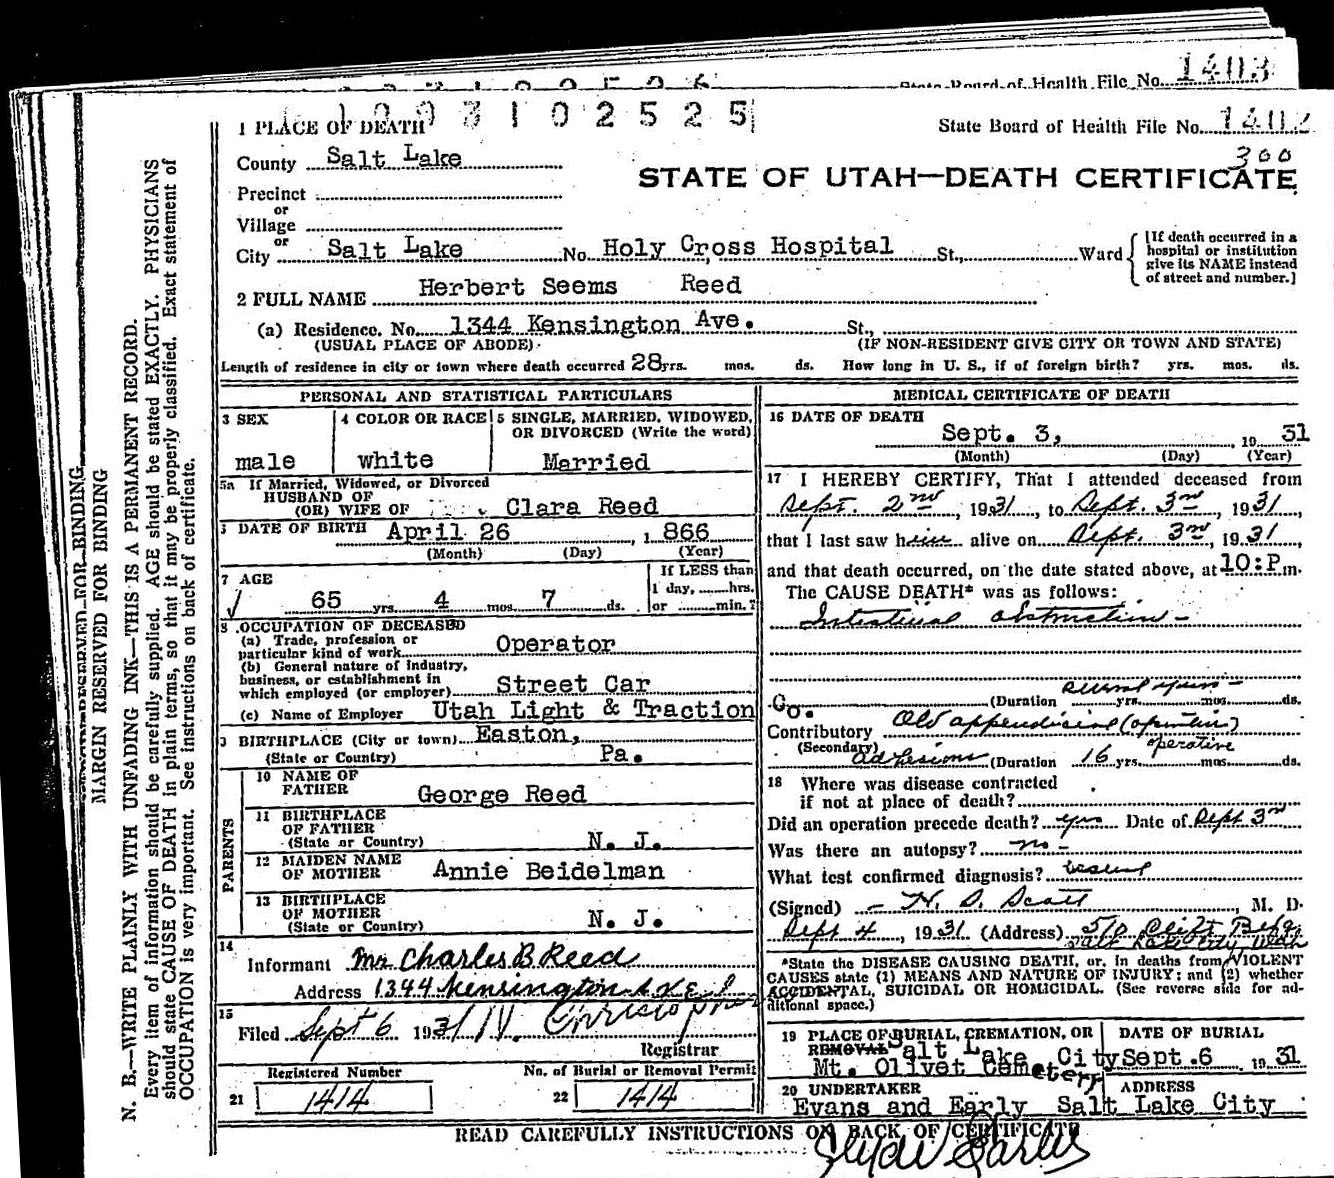 State Board of Health File No. 1403
1 PLACE OF DEATH
3 1 0 2 5 2 5
State Board of Health File No. 1402
300
County Salt Lake
STATE OF UTAH—DEATH CERTIFICATE
Precinct
or
Village
or
City Salt Lake No. Holy Cross Hospital St., Ward
[If death occurred in a hospital or institution give its NAME instead of street and number.]
2 FULL NAME Herbert Seems Reed
(a) Residence. No. 1344 Kensington Ave. St.,
(USUAL PLACE OF ABODE) (IF NON-RESIDENT GIVE CITY OR TOWN AND STATE)
Length of residence in city or town where death occurred 28 yrs. mos. ds. How long in U. S., if of foreign birth? yrs. mos. ds.
PERSONAL AND STATISTICAL PARTICULARS
3 SEX
male
4 COLOR OR RACE
white
5 SINGLE, MARRIED, WIDOWED,
OR DIVORCED (Write the word)
Married
5a If Married, Widowed, or Divorced
HUSBAND OF
(OR) WIFE OF Clara Reed
DATE OF BIRTH April 26 1 866
(Month) (Day) (Year)
7 AGE
65 yrs. 4 mos. 7 ds.
If LESS than
1 day, hrs.
or min.?
8 OCCUPATION OF DECEASED
(a) Trade, profession or
particular kind of work Operator
(b) General nature of industry,
business, or establishment in
which employed (or employer) Street Car
(c) Name of Employer Utah Light & Traction Co.
BIRTHPLACE (City or town) Easton,
(State or Country) Pa.
PARENTS
10 NAME OF
FATHER George Reed
11 BIRTHPLACE
OF FATHER
(State or Country) N. J.
12 MAIDEN NAME
OF MOTHER Annie Beidelman
13 BIRTHPLACE
OF MOTHER
(State or Country) N. J.
14
Informant Mr Charles B Reed
Address 1344 Kensington Ave
15
Filed Sept 6 1931
Registrar
Registered Number
21 1414
No. of Burial or Removal Permit
22 1414
MEDICAL CERTIFICATE OF DEATH
16 DATE OF DEATH
Sept. 3, 19 31
(Month) (Day) (Year)
17 I HEREBY CERTIFY, That I attended deceased from
Sept. 2nd, 1931, to Sept. 3rd, 1931,
that I last saw him alive on Sept. 3rd, 1931,
and that death occurred, on the date stated above, at 10:P.m.
The CAUSE DEATH* was as follows:
Intestinal obstruction -
several years -
(Duration yrs. mos. ds.
Contributory Old appendicial (operation)
(Secondary) operative
adhesions (Duration 16 yrs. mos. ds.
18 Where was disease contracted
if not at place of death?
Did an operation precede death? yes Date of Sept 3rd
Was there an autopsy? no -
What test confirmed diagnosis?
(Signed) - H. D. Scott, M. D.
Sept 4, 1931 (Address) 510 Clift Bldg
Salt Lake City Utah
*State the DISEASE CAUSING DEATH, or, in deaths from VIOLENT
CAUSES state (1) MEANS AND NATURE OF INJURY; and (2) whether
ACCIDENTAL, SUICIDAL OR HOMICIDAL. (See reverse side for ad-
ditional space.)
19 PLACE OF BURIAL, CREMATION, OR
REMOVAL Salt Lake City
Mt. Olivet Cemetery
DATE OF BURIAL
Sept. 6 19 31
20 UNDERTAKER
Evans and Early
ADDRESS
Salt Lake City
READ CAREFULLY INSTRUCTIONS ON BACK OF CERTIFICATE
MARGIN RESERVED FOR BINDING
N. B.—WRITE PLAINLY WITH UNFADING INK—THIS IS A PERMANENT RECORD.
Every item of information should be carefully supplied. AGE should be stated EXACTLY. PHYSICIANS
should state CAUSE OF DEATH in plain terms, so that it may be properly classified. Exact statement of
OCCUPATION is very important. See instructions on back of certificate.